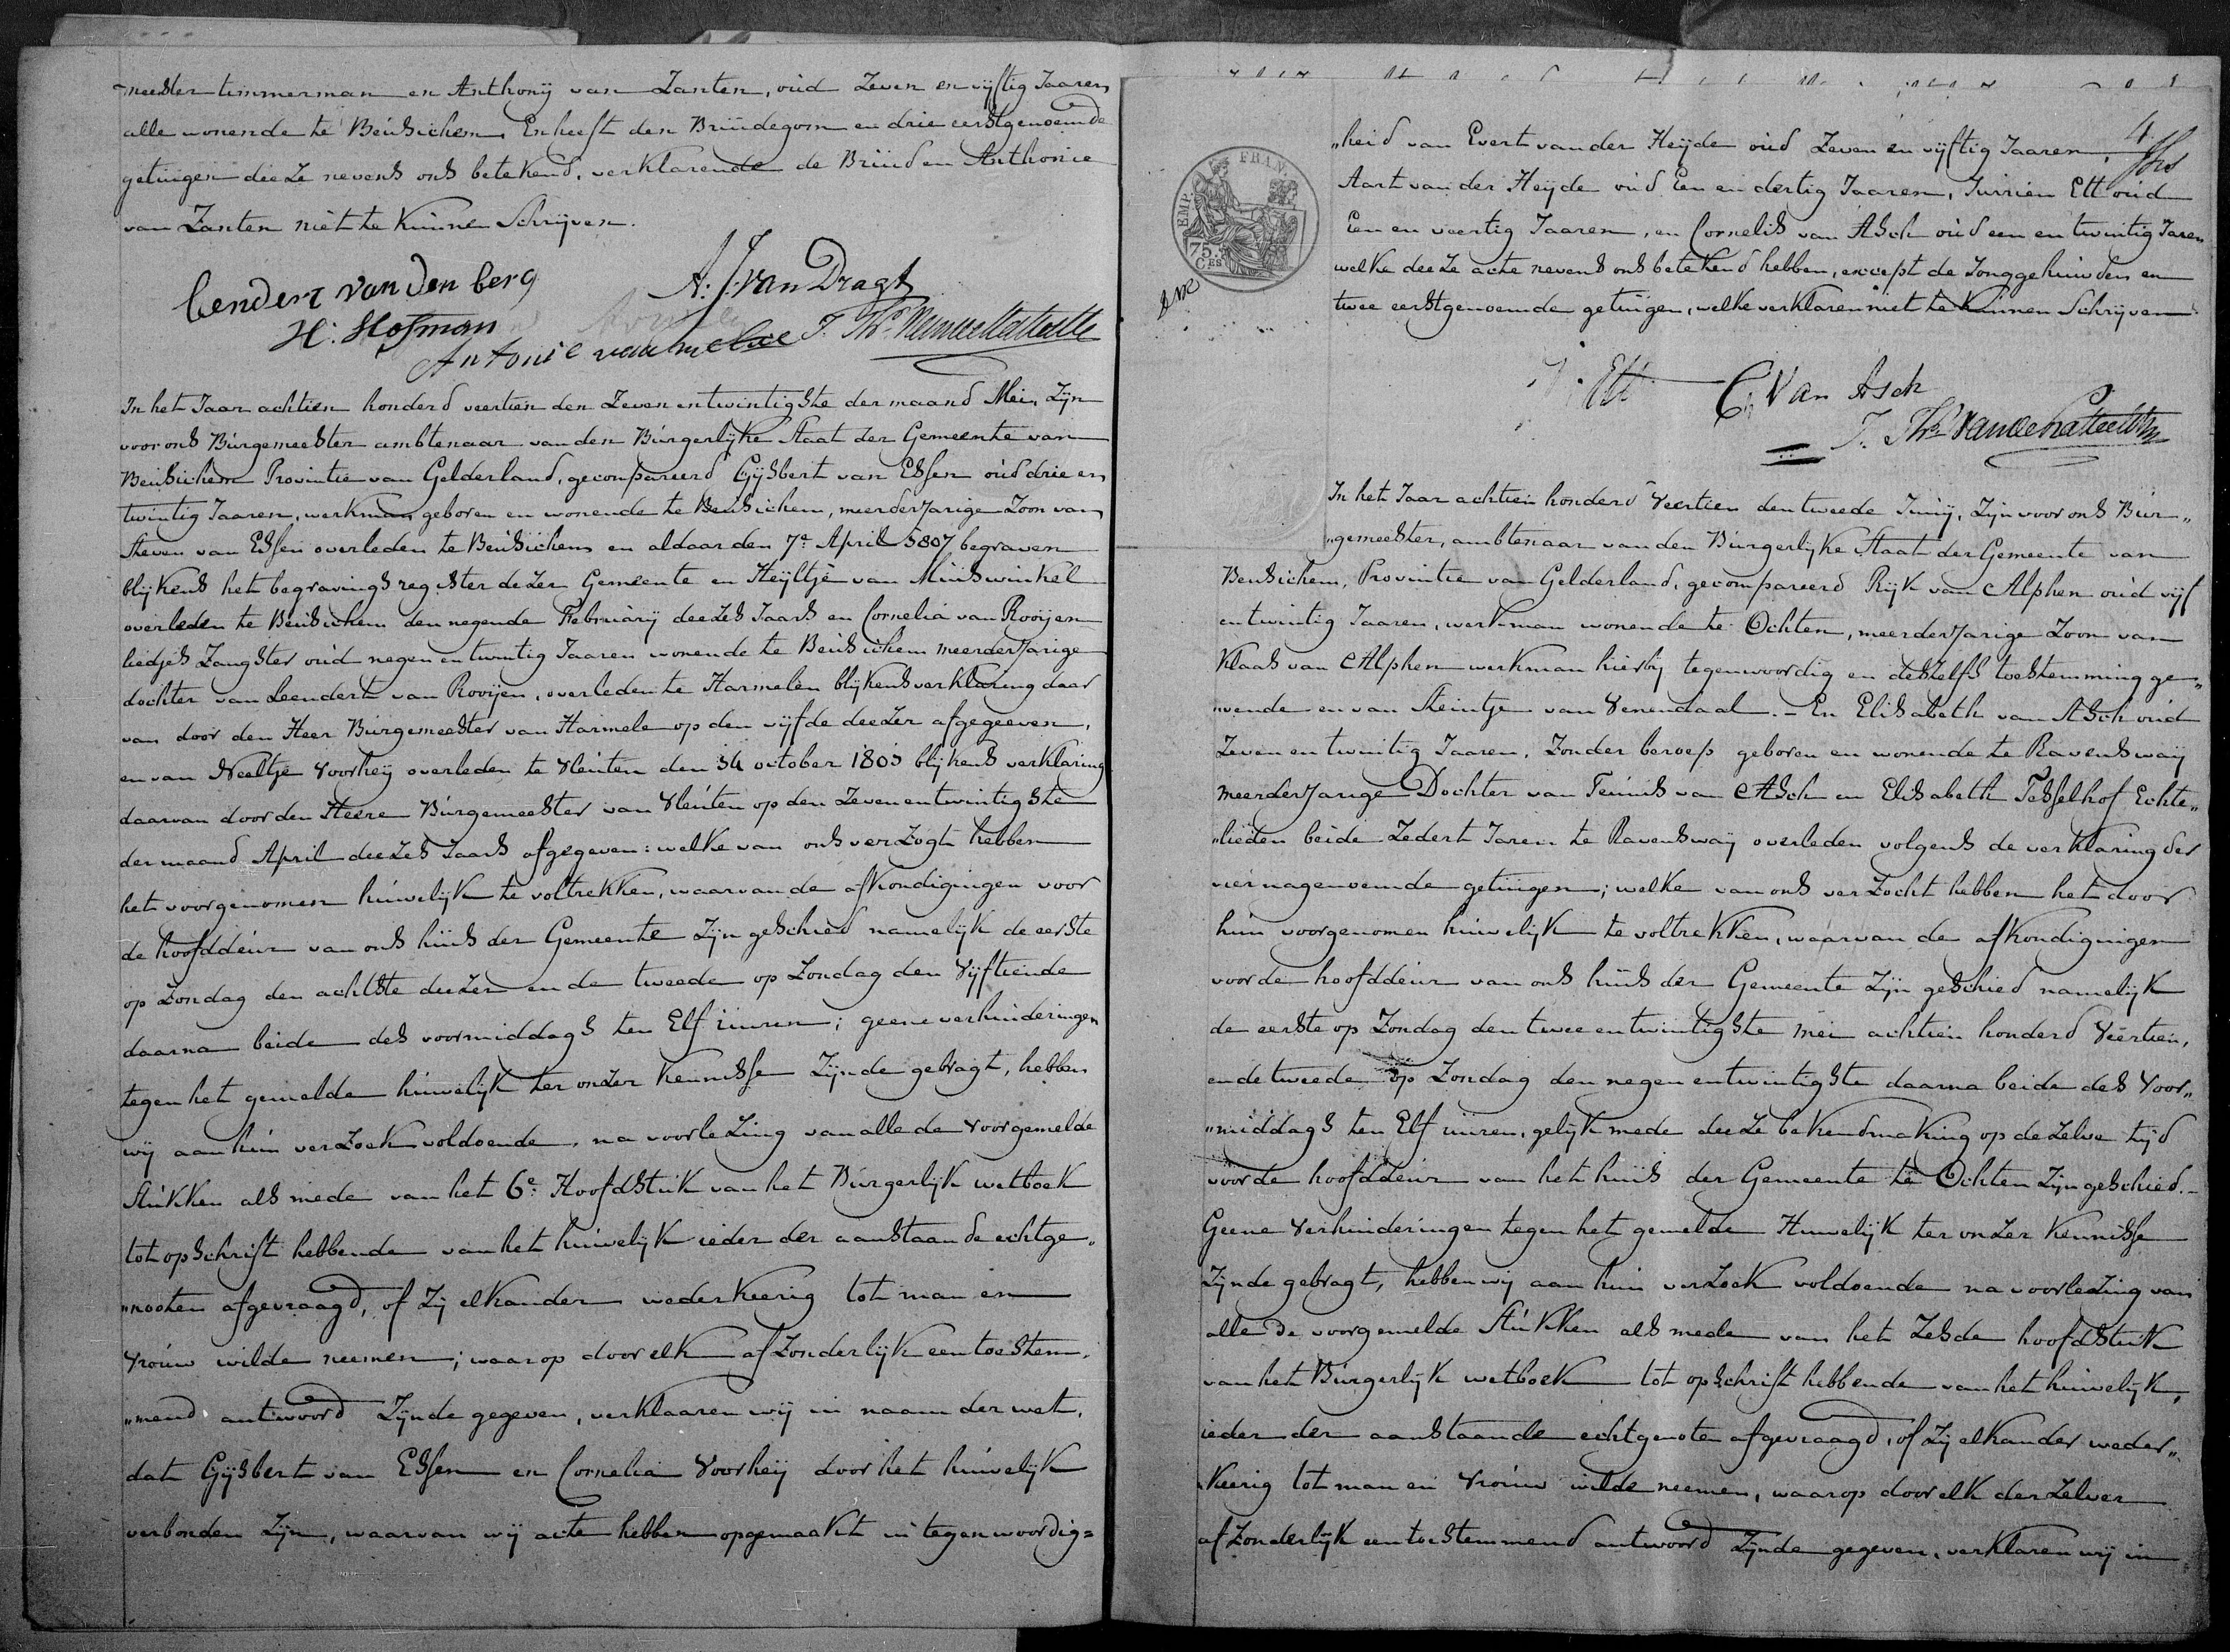 meester timmerman en Anthonij van Zanten, oud Zeven en vijftig Jaaren
alle wonende te Beusichem. En heeft den Bruidegom en drie eerstgenoemde
getuigen deeze nevens ons betekend, verklarende de Bruid en Anthonie
van Zanten niet te kunnen Schrijven.
Lendert van den berg
A. J. van Dragt
H. Hofman
Antonie van
In het Jaar achtien honderd veertien den Zeven en twintigste der maand Mei, Zijn
voor ons Burgemeester ambtenaar van den Burgerlijke Staat der Gemeente van
Beusichem Provintie van Gelderland, gecompareerd Gijsbert van Essen oud drie en
twintig Jaaren, werkman geboren en wonende te Beusichem, meerderjarige Zoon van
Steven van Essen overleden te Beusichem en aldaar den 7e April 1807 begraven
blijkens het begravings register dezer Gemeente en Heijltje van Muiswinkel
overleden te Beusichem den negende Februarij deezes Jaars en Cornelia van Rooijen
liedjes Zangster oud negen en twintig Jaaren wonende te Beusichem meerderjarige
dochter van Leendert van Rooijen, overleden te Harmelen blijkens verklaring daar
van door den Heer Burgemeester van Harmele op den vijfde deezer afgegeeven,
en van Neeltje Voorheij overleden te Vleuten den 14 october 1805 blijkens verklaring
daarvan door den Heere Burgemeester van Vleuten op den Zeven en twintigste
der maand April deezes Jaars afgegeven: welke van ons verzogt hebben
het voorgenomen huwelijk te voltrekken, waarvan de afkondigingen voor
de hoofddeur van ons huis der Gemeente Zijn geschied namelijk de eerste
op Zondag den achtste deezer en de tweede op Zondag den Vijftiende
daarna beide des voormiddags ten Elf uuren; geene verhinderingen
tegen het gemelde huwelijk ter onzer kennisse Zijnde gebragt, hebben
wij aan hun verzoek voldoende, na voorlezing van alle de voorgemelde
Stukken als mede van het 6e Hoofdstuk van het Burgerlijk wetboek
tot opschrift hebbende van het huwelijk ieder der aanstaande echtge„
„nooten afgevraagd, of Zij elkander wederkeerig tot man en
Vrouw wilde neemen; waarop door elk afzonderlijk een toestem„
„mend antwoord Zijnde gegeven, verklaaren wij in naam der wet,
dat Gijsbert van Essen en Cornelia Voorheij door het huwelijk
verbonden Zijn, waarvan wij acte hebben opgemaakt in tegenwoordig=
4
„heid van Evert van der Heijde oud Zeven en vijftig Jaaren,
Aart van der Heijde oud Een en dertig Jaaren, Jurrien Ett oud
Een en veertig Jaaren, en Cornelis van Asch oud een en twintig Jaren
welke deeze acte nevens ons betekend hebben, except de Jonggehuwden en
twee eerstgenoemde getuigen, welke verklaren niet te kunnen Schrijven
EMP. FRAN.
75. CES
J. Ett
C. Van Asch
In het Jaar achtien honderd Veertien den tweede Junij, Zijn voor ons Bur„
„gemeester, ambtenaar van den Burgerlijke Staat der Gemeente van
Beusichem, Provintie van Gelderland, gecompareerd Rijk van Alphen oud vijf
en twintig Jaaren, werkman wonende te Ochten, meerderjarige Zoon van
Klaas van Alphen werkman hierbij tegenwoordig en deszelfs toestemming ge„
„vende en van Steintje van Venendaal. - En Elisabeth van Asch oud
Zeven en twintig Jaaren, Zonder beroep geboren en wonende te Ravenswaij
meerderjarige Dochter van Teunis van Asch en Elisabeth Tesselhof Echte„
„lieden beide Zedert Jaren te Ravenswaij overleden volgens de verklaring der
vier nagenoemde getuigen; welke van ons verzocht hebben het door
hun voorgenomen huwelijk te voltrekken, waarvan de afkondigingen
voor de hoofddeur van ons huis der Gemeente Zijn geschied namelijk
de eerste op Zondag den twee en twintigste mei achtien honderd Veertien,
en de tweede op Zondag den negen en twintigste daarna beide des Voor„
„middags ten Elf uuren, gelijk mede deeze bekendmaking op de zelve tijd
voor de hoofddeur van het huis der Gemeente te Ochten Zijn geschied. -
Geene Verhinderingen tegen het gemelde Huwelijk ter onzer kennisse
Zijnde gebragt, hebben wij aan hun verzoek voldoende na voorlezing van
alle de voorgemelde Stukken als mede van het Zesde hoofdstuk
van het Burgerlijk wetboek tot opschrift hebbende van het huwelijk,
ieder der aanstaande echtgenoten afgevraagd, of Zij elkander weder„
„keerig tot man en Vrouw wilde neemen, waarop door elk derzelver
afzonderlijk een toestemmend antwoord Zijnde gegeven, verklaren wij in